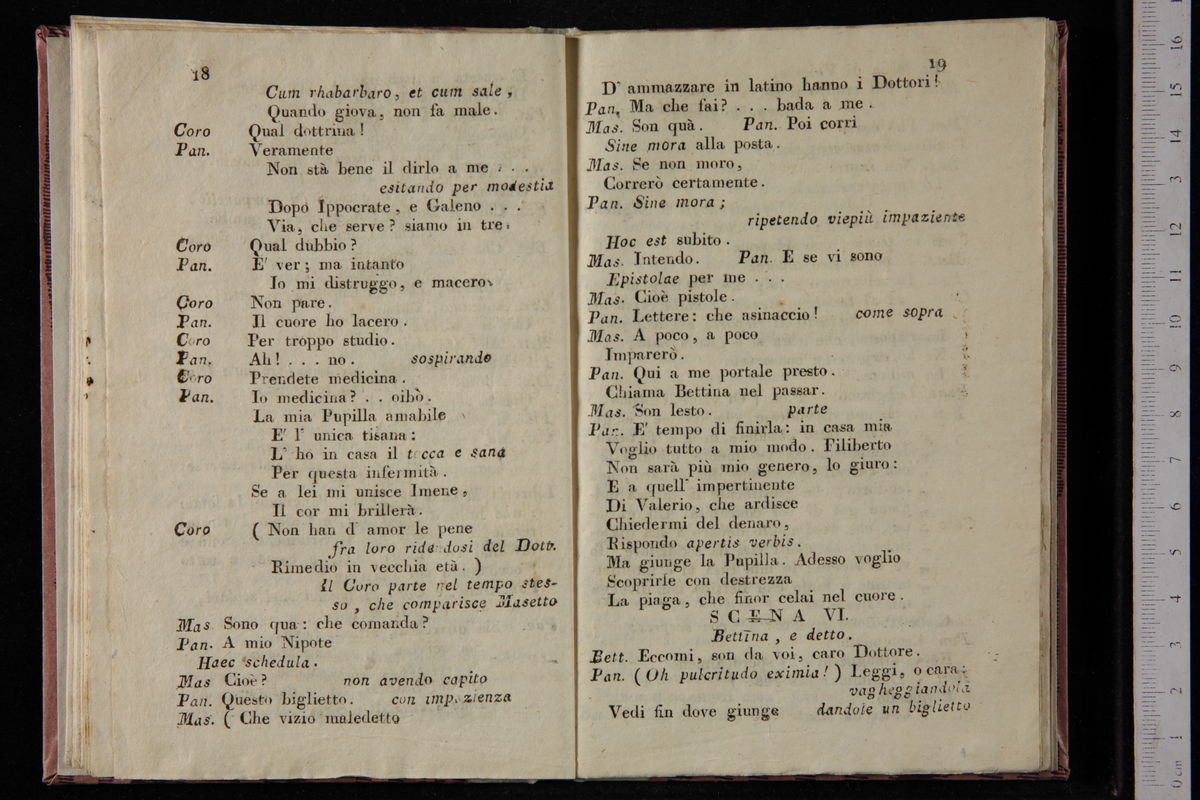 18
Cum rhabarbaro, et cum sale,
Quando giova, non fa male.
Coro Qual dottrina!
Pan. Veramente
Non stà bene il dirlo a me . . .
esitando per modestia
Dopo Ippocrate, e Galeno . . .
Via, che serve? siamo in tre.
Coro Qual dubbio?
Pan. E' ver; ma intanto
Io mi distruggo, e macero
Coro Non pare.
Pan. Il cuore ho lacero.
Coro Per troppo studio.
Pan. Ah! . . . no. sospirando
Coro Prendete medicina.
Pan. Io medicina? . . oibò.
La mia Pupilla amabile
E' l' unica tisana:
L' ho in casa il tocca e sana
Per questa infermità.
Se a lei mi unisce Imene,
Il cor mi brillerà.
Coro ( Non han d' amor le pene
fra loro ridendosi del Dott.
Rimedio in vecchia età. )
il Coro parte nel tempo stes-
so, che comparisce Masetto
Mas. Sono qua: che comanda?
Pan. A mio Nipote
Haec schedula.
Mas Cioè? non avendo capito
Pan. Questo biglietto. con impazienza
Mas. ( Che vizio maledetto
19
D' ammazzare in latino hanno i Dottori!
Pan. Ma che fai? . . . bada a me.
Mas. Son quà. Pan. Poi corri
Sine mora alla posta.
Mas. Se non moro,
Correrò certamente.
Pan. Sine mora;
ripetendo viepiù impaziente
Hoc est subito.
Mas. Intendo. Pan. E se vi sono
Epistolae per me . . .
Mas. Cioè pistole.
Pan. Lettere: che asinaccio! come sopra
Mas. A poco, a poco
Imparerò.
Pan. Qui a me portale presto.
Chiama Bettina nel passar.
Mas. Son lesto. parte
Pan. E' tempo di finirla: in casa mia
Voglio tutto a mio modo. Filiberto
Non sarà più mio genero, lo giuro:
E a quell' impertinente
Di Valerio, che ardisce
Chiedermi del denaro,
Rispondo apertis verbis.
Ma giunge la Pupilla. Adesso voglio
Scoprirle con destrezza
La piaga, che finor celai nel cuore.
SCENA VI.
Bettina, e detto.
Bett. Eccomi, son da voi, caro Dottore.
Pan. ( Oh pulcritudo eximia! ) Leggi, o cara:
vagheggiandola
Vedi fin dove giunge dandole un biglietto
0 cm 1 2 3 4 5 6 7 8 9 10 11 12 13 14 15 16